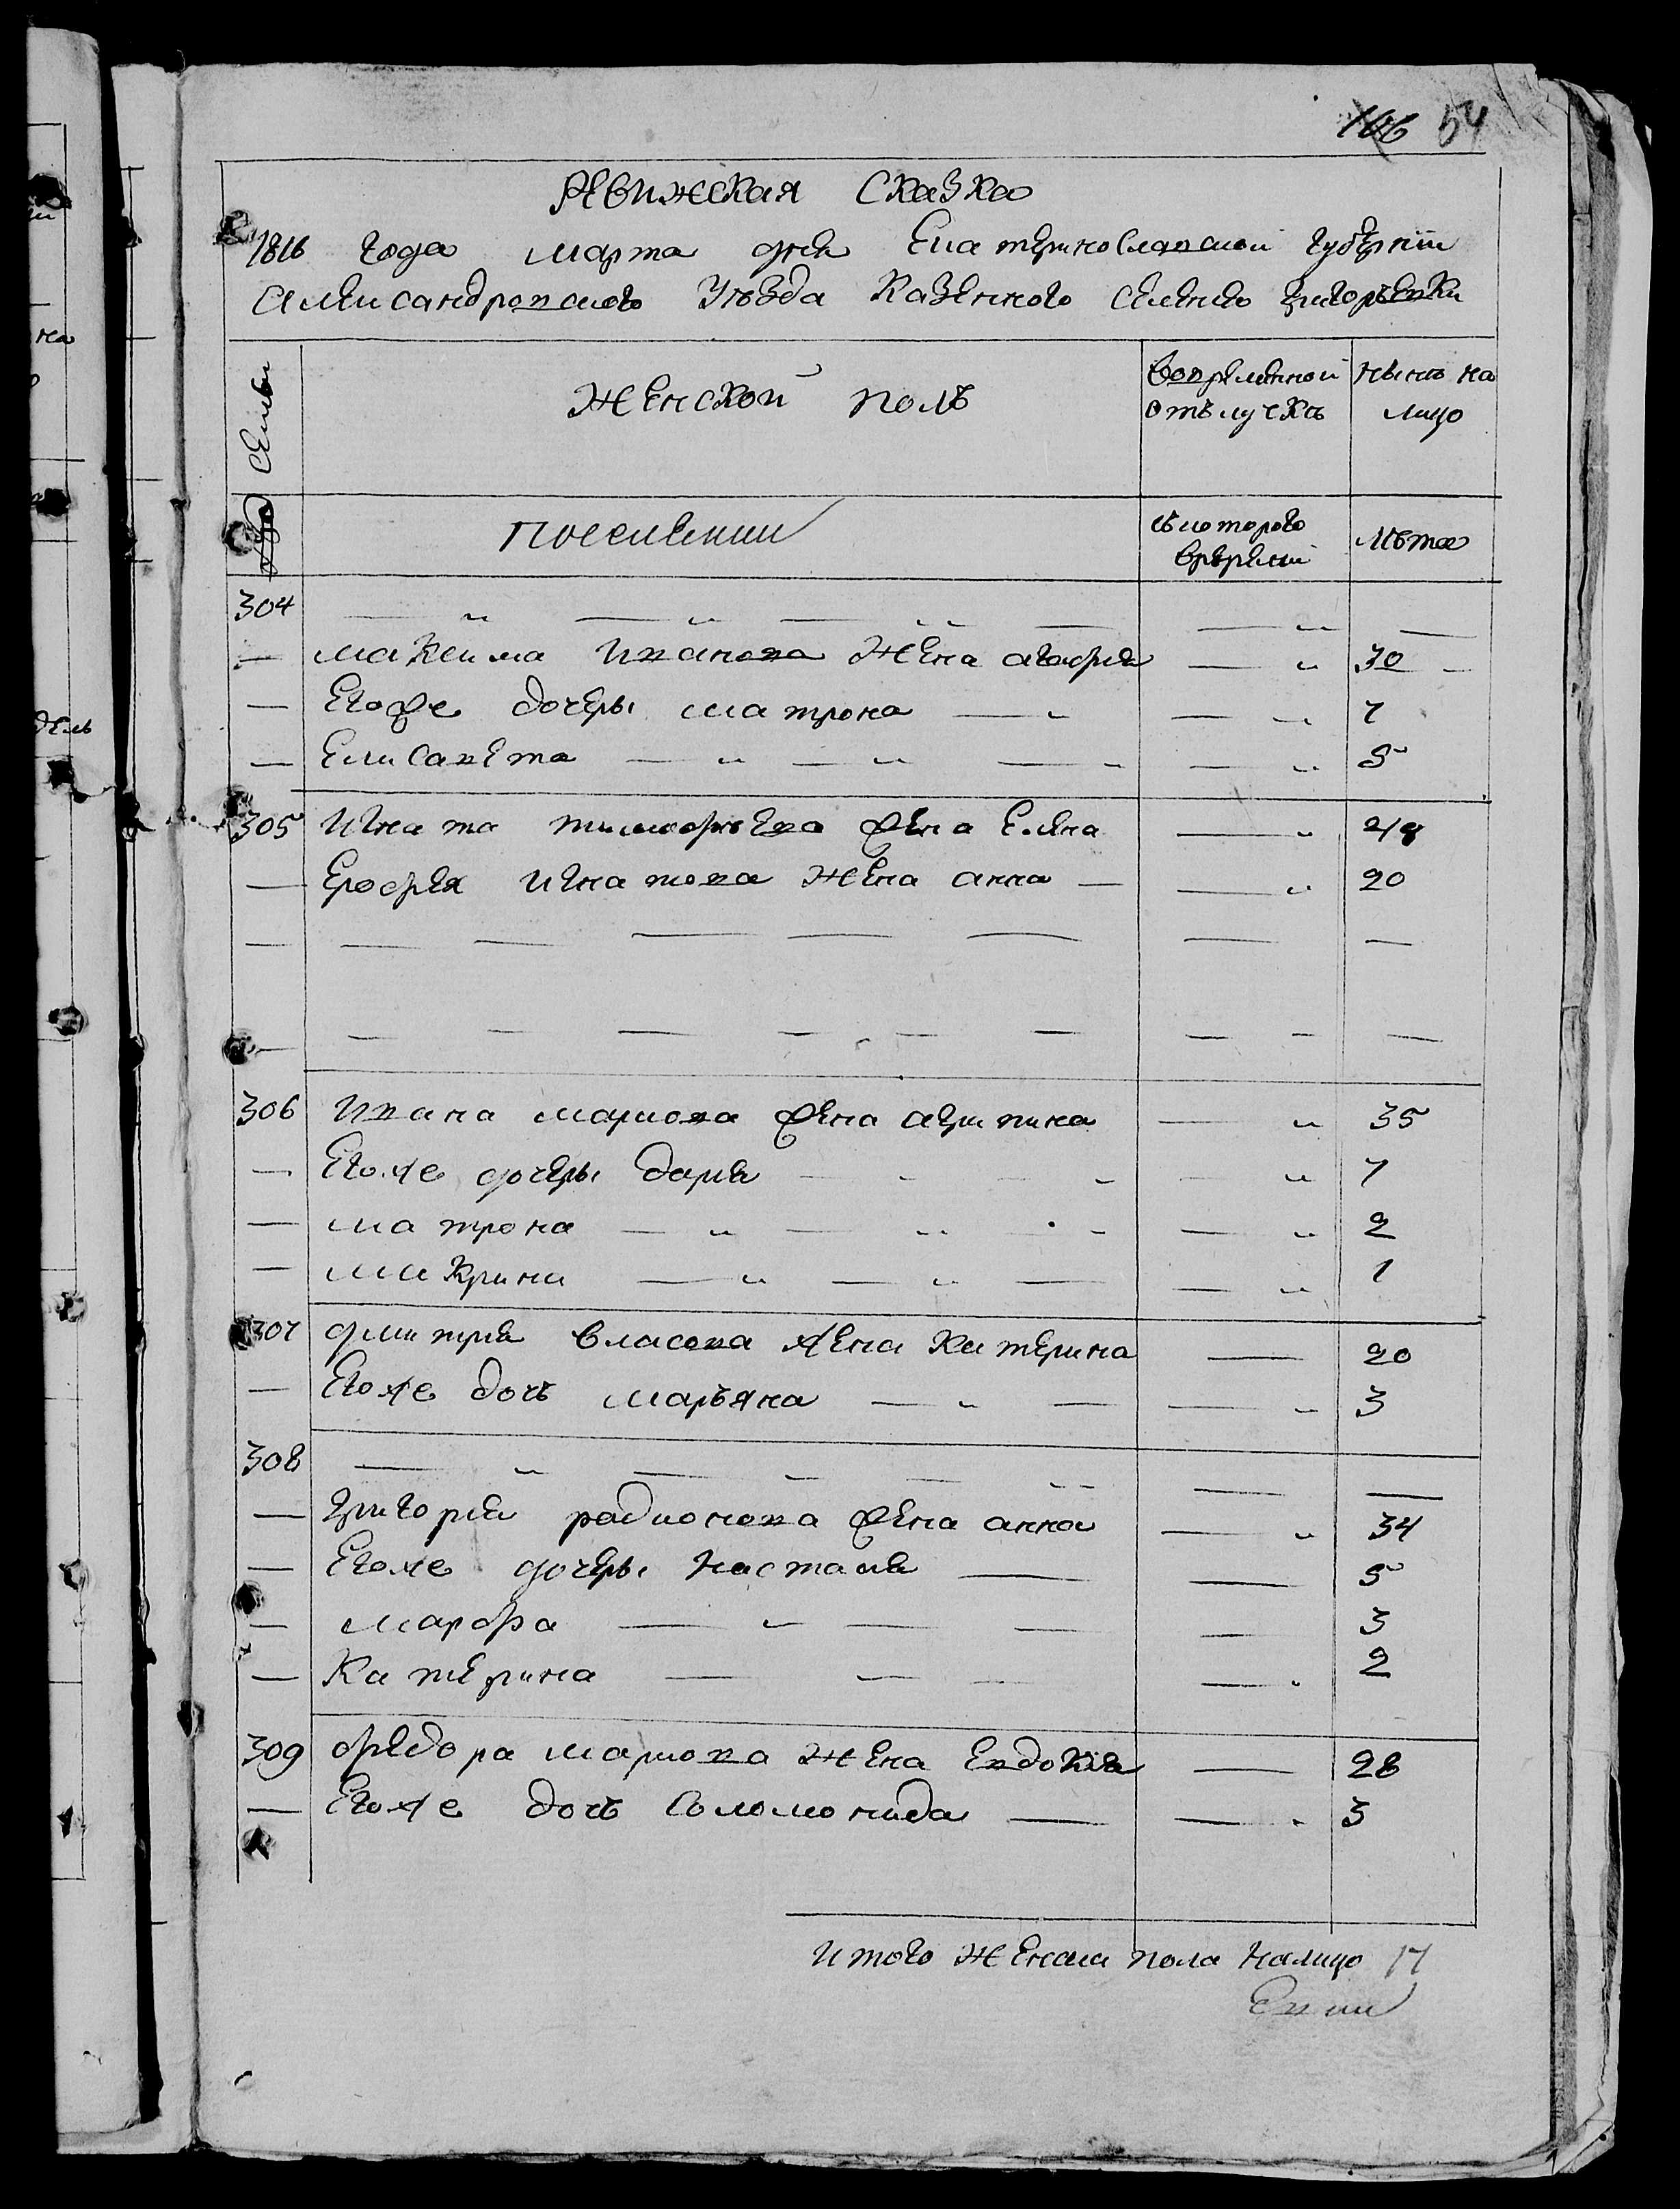 106 54
Ревижская Сказка
1816 года марта дня Екатеринославской губернии
Александровского Уезда Казенного селения Григорьевки
Семьи
Женской поль
вопременной отълучке
ныне на лицо
Поселенки
съ которого времени
Лета
304
— Максима Иванова Жена агафия — 30
— Егоже дочеры матрона — 7
— Елисавета — 5
305 Игната тимофеева жена Елена — 48
— Ерофея Игнатова Жена анна — 20
306 Ивана маркова жена агрипина — 35
— Егоже дочеры дария — 7
— матрона — 2
— макрина — 1
307 дмитрия власова жена Катерина — 20
— Егоже дочь марьяна — 3
308
— григория радионова жена анна — 34
— Егоже дочеры настасия — 5
— марфа — 3
— Катерина — 2
309 федора маркова жена Евдокия — 28
— Егоже дочь соломонида — 3
итого женска пола налицо 17